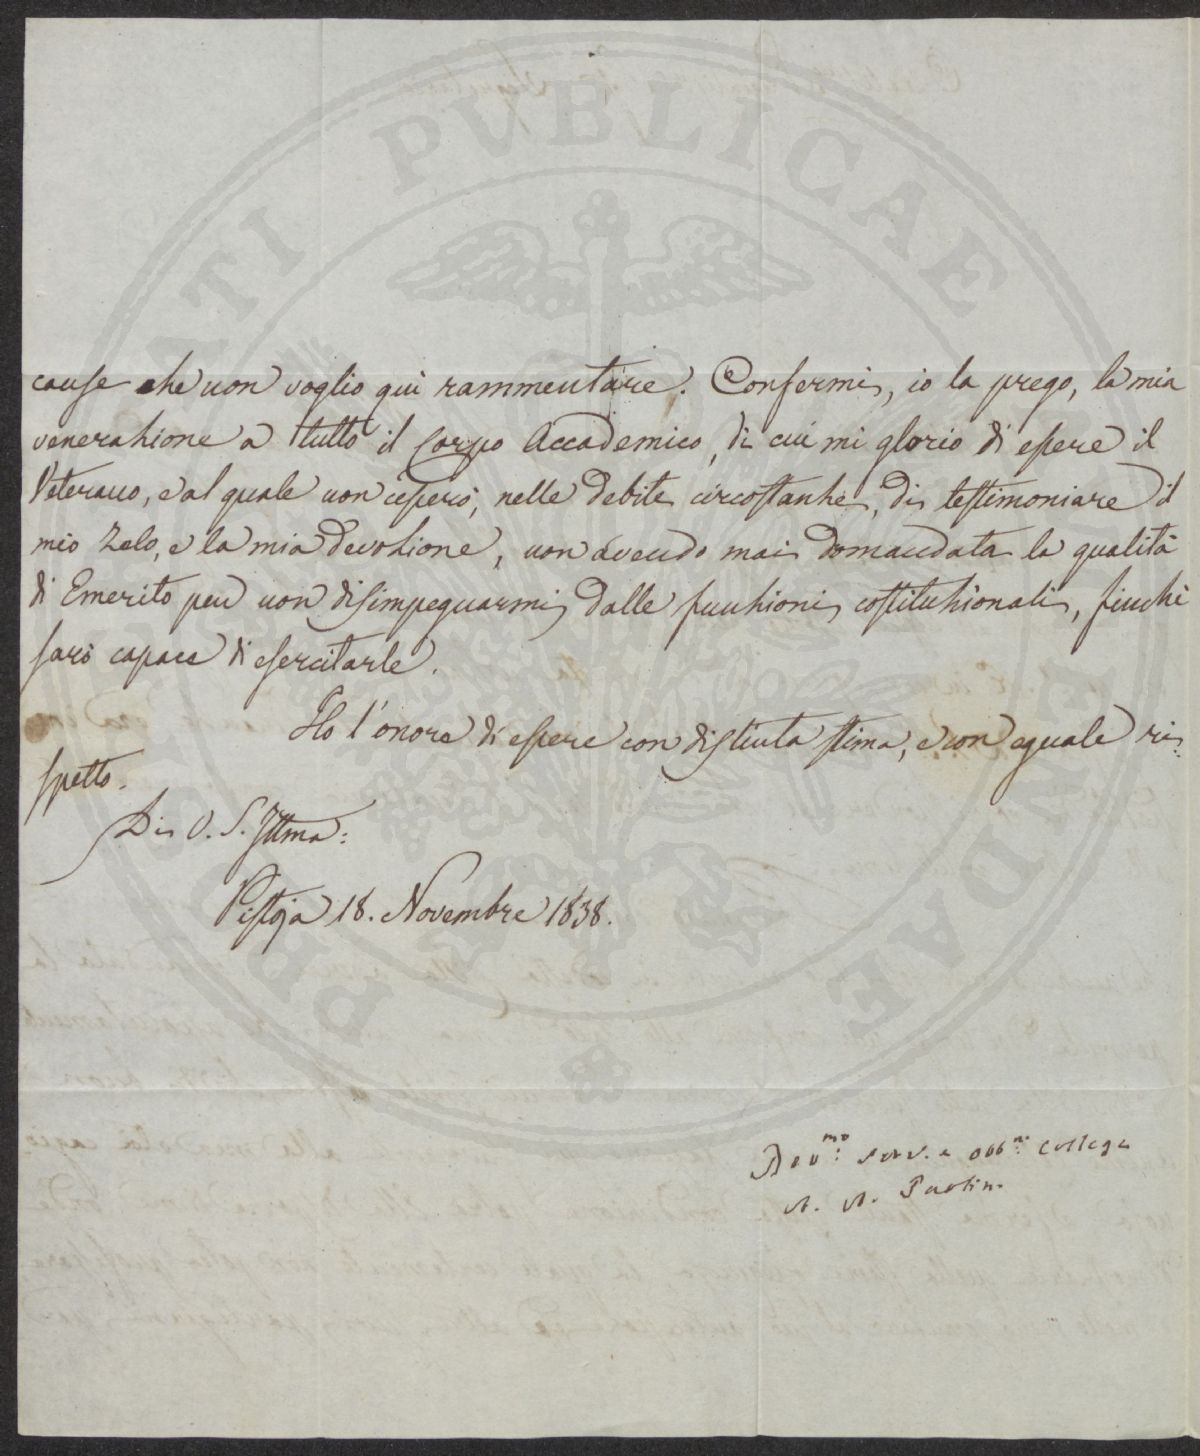 cause che non voglio qui rammentare. Confermi, io la prego, la mia
venerazione a tutto il Corpo Accademico, di cui mi glorio di essere il
Veterano, e al quale non cesserò, nelle debite circostanze, di testimoniare il
mio Zelo, e la mia devozione, non avendo mai domandata la qualità
di Emerito per non disimpegnarmi dalle funzioni costituzionali, finchè
sarò capace di esercitarle.
Ho l'onore di essere con distinta stima, e con eguale ri:
spetto.
Di V. S. Illma:
Pistoja 18. Novembre 1838.
Devmo: serv. e obbmo: Collega
A. A. Paolini
PROSPERITATI PVBLICAE AVGENDAE